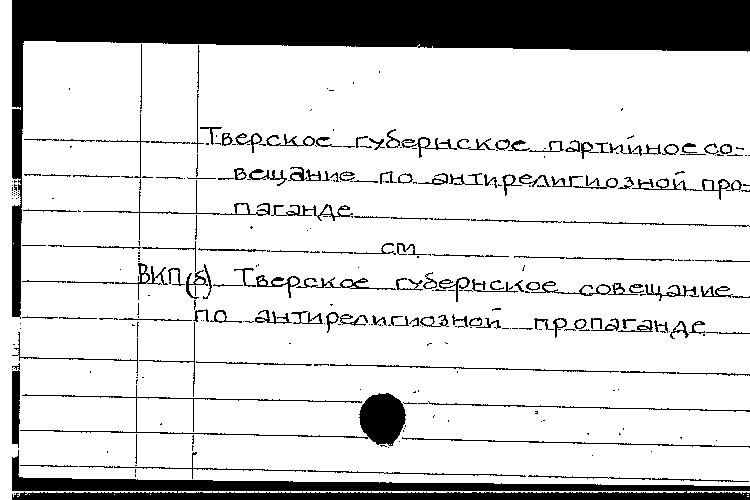 Тверское губернское партийное со-
вещание по антирелигиозной про-
паганде
см.
ВКП(б) Тверское губернское совещание
по антирелигиозной пропаганде